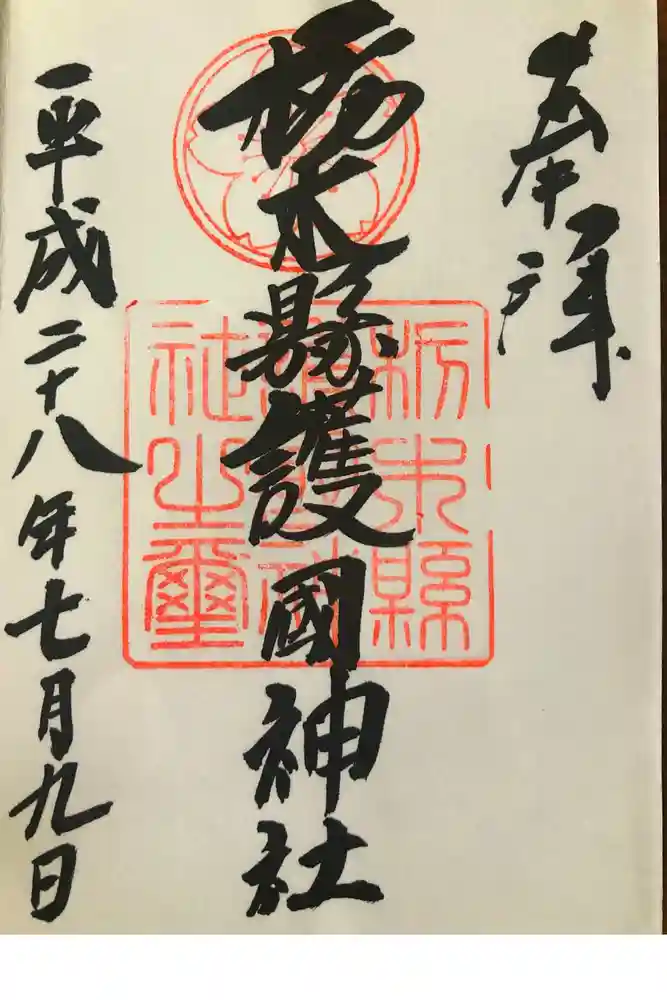 奉拝
栃木縣護國神社
栃木縣
護國神
社之璽
平成二十八年七月九日